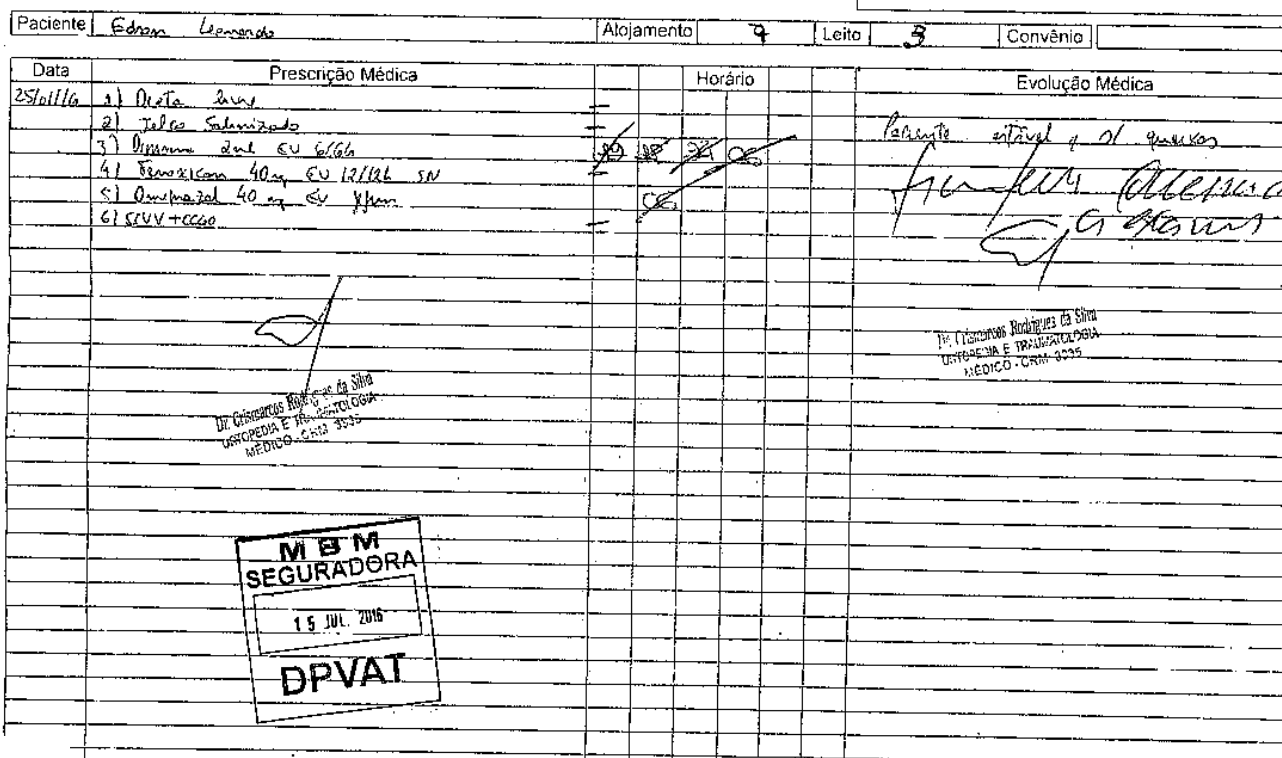 Paciente Edson Leonardo Alojamento 7 Leito 3 Convênio
Data Prescrição Médica Horário Evolução Médica
25/01/16 1) Dieta livre
2) Jelco Salinizado
3) Dipirona 2ml EV 6/6h 18 24 06
Paciente estável s/ queixas
4) Tenoxicam 40mg EV 12/12h SN
5) Omeprazol 40mg EV jejum 06
6) SSVV + CCGG
Dr. Crismarcos Rodrigues da Silva
ORTOPEDIA E TRAUMATOLOGIA
MÉDICO - CRM 3535
Dr. Crismarcos Rodrigues da Silva
ORTOPEDIA E TRAUMATOLOGIA
MÉDICO - CRM 3535
MBM
SEGURADORA
15 JUL. 2016
DPVAT